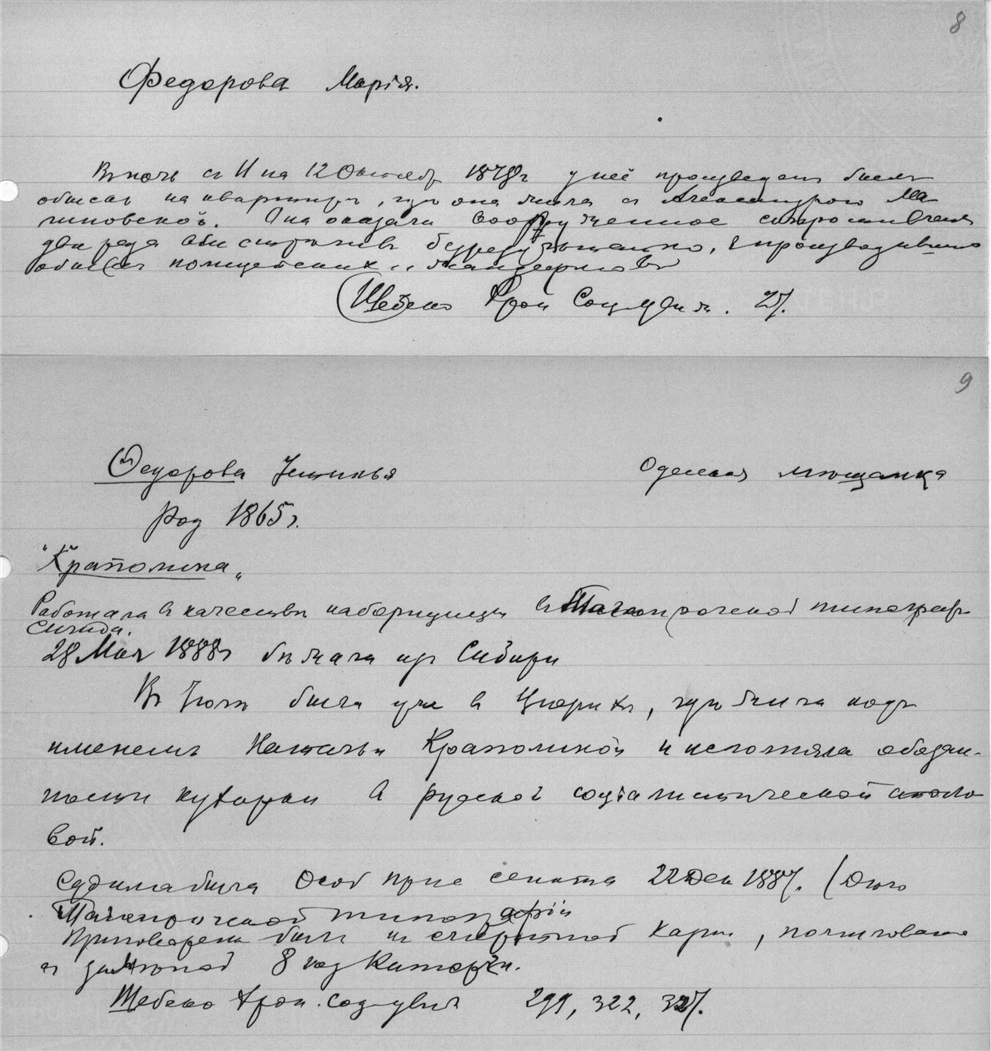 8
Федорова Марія.
Въ ночь съ 11 на 12 Октябр 1878г у неё произведенъ былъ
обыскъ на квартирѣ, гдѣ она жила съ Александрою Ма
линовской. Она оказала вооруженное сопротивленіе
два раза выстрѣливъ безрезультатно, в производившихъ
обыскъ полицейскихъ и жандармовъ
Шебеко Хрон Соц. движ. 27.
9
Федорова Устинья
Одесская мѣщанка
род 1865г.
"Крапоткина"
Работала въ качествѣ наборщицы въ Таганрогской типограф
Сигида.
28 Мая 1888г бѣжала из Сибири
Въ Іюлѣ была уже въ Цюрихѣ, гдѣ жила подъ
именемъ Натальи и исполняла обязан-
ности кухарки в русской соціалистической столо
вой.
Судима была Особ Прис сената 22 Дек 1887. (Дѣло
Таганрогской типографіи
Приговорена была къ смертной казни, помилована
с заменой 8 год каторги.
Шебеко Хрон. соц. движ 299, 322, 327.